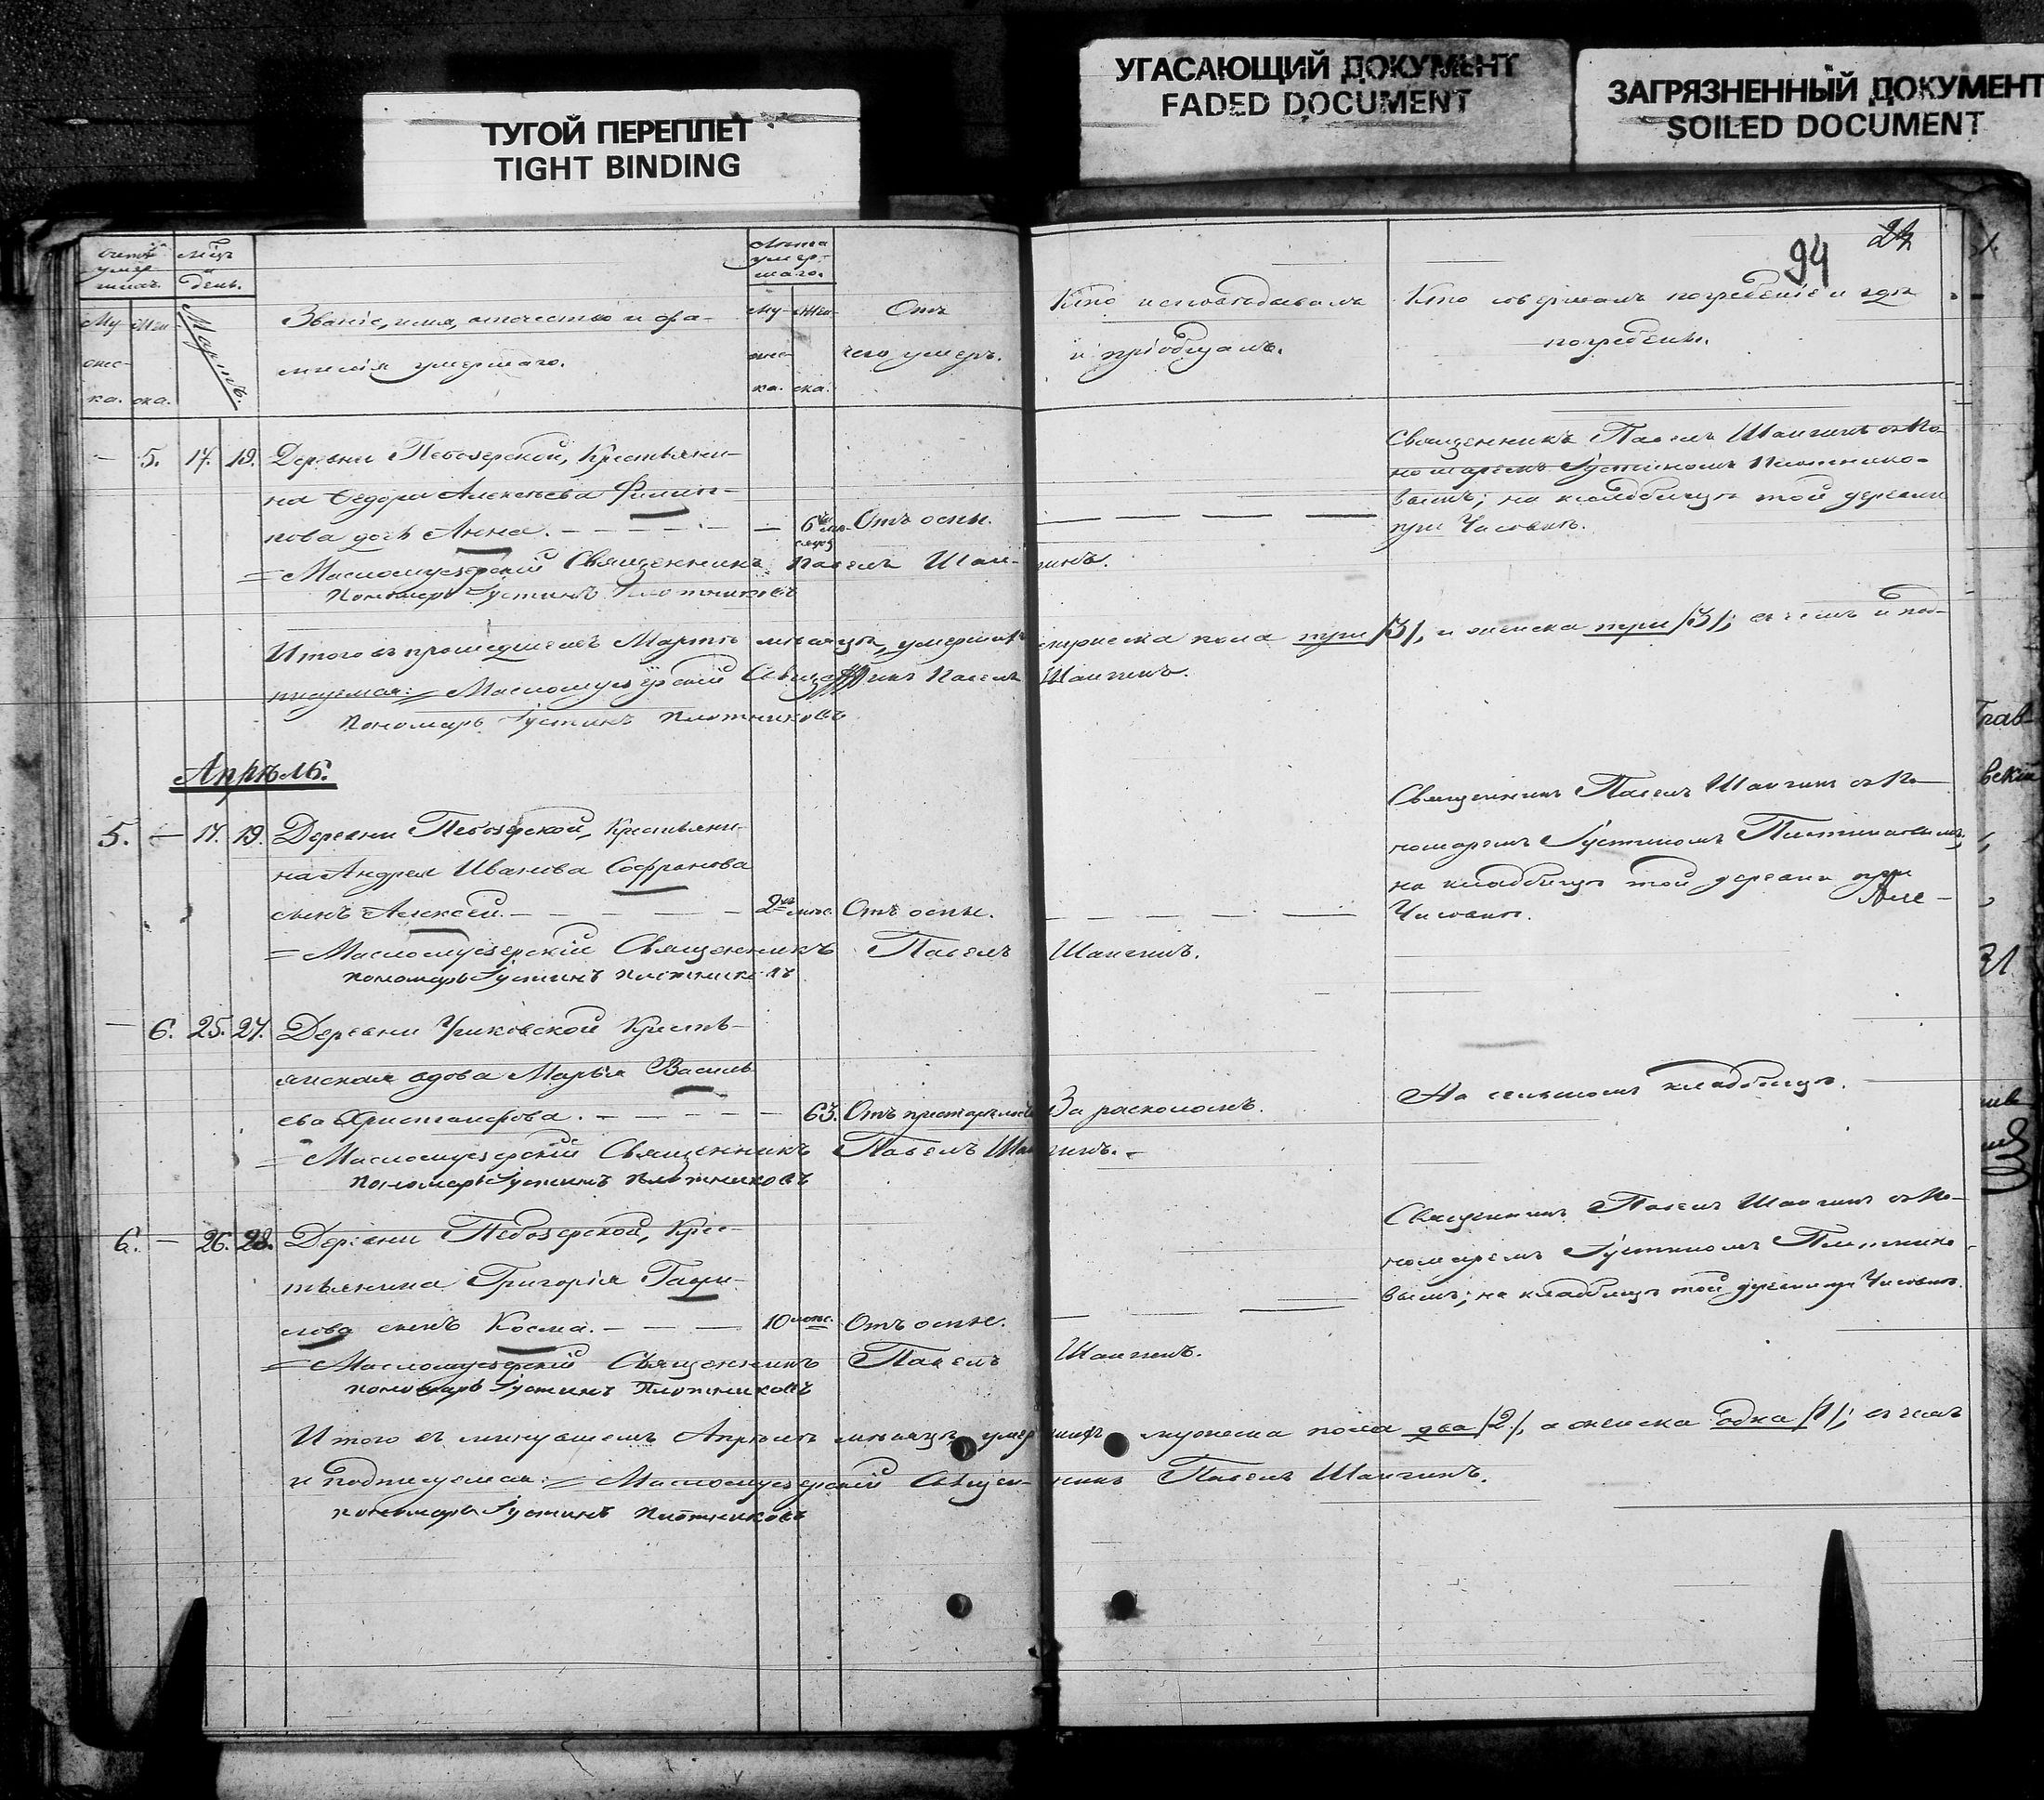 ТУГОЙ ПЕРЕПЛЕТ
TIGHT BINDING
УГАСАЮЩИЙ ДОКУМЕНТ
FADED DOCUMENT
ЗАГРЯЗНЕННЫЙ ДОКУМЕНТ
SOILED DOCUMENT
94
Счетъ умер-
шихъ.
Мцъ и
день.
Му-
жес-
ка.
Жен-
ска.
Мартъ.
Званіе, имя, отчество и фа-
милія умершаго.
Лѣта
умер-
шаго.
Му-
жес-
ка.
Жен-
ска.
Отъ
чего умеръ.
Кто исповѣдывалъ
и пріобщалъ.
Кто совершалъ погребеніе и гдѣ
погребены.
— 5. 17. 19. Деревни Пебозерской, Крестьяни-
на Ѳедора Алексѣева Филип-
пова дочь Анна. — — 6 Отъ оспы.
Священникъ Павелъ Шангинъ съ По-
номаремъ Іустиномъ Плотнико-
вымъ; на кладбищѣ той деревни
при Часовнѣ.
= Масломуезерскій Священникъ Павелъ Шангинъ.
Пономарь Іустинъ Плотниковъ
Итого въ прошедшемъ Мартѣ мѣсяцѣ, умершихъ мужеска пола три /3/, и женска три /3/; въ чемъ и под-
писуемся: = Масломуезерскій Священникъ Павелъ Шангинъ.
Пономарь Іустинъ Плотниковъ
Апрѣль.
5. — 17. 19. Деревни Пебозерской, Крестьяни-
на Андрея Иванова Софронова
сынъ Алексѣй. — — 2 мѣс. Отъ оспы.
Священникъ Павелъ Шангинъ съ По-
номаремъ Іустиномъ Плотниковымъ,
на кладбищѣ той деревни при
Часовнѣ.
= Масломуезерскій Священникъ Павелъ Шангинъ.
Пономарь Іустинъ Плотниковъ
— 6. 25. 27. Деревни Ушковской Кресть-
янская вдова Марья Василь
ева Христофорова. — — 63. Отъ престарѣлости За расколомъ.
На сельскомъ кладбищѣ.
= Масломуезерскій Священникъ Павелъ Шангинъ. —
Пономарь Іустинъ Плотниковъ
6. — 26. 28. Деревни Пебозерской, Крес-
тьянина Григорія Гаври-
лова сынъ Косма. — — 10 мѣс. Отъ оспы.
Священникъ Павелъ Шангинъ съ По-
номаремъ Іустиномъ Плотнико
вымъ; на кладбищѣ той деревни при Часовнѣ.
= Масломуезерскій Священникъ Павелъ Шангинъ.
Пономарь Іустинъ Плотниковъ
Итого въ минувшемъ Апрѣлѣ мѣсяцѣ умершихъ мужеска пола два /2/, а женска одна /1/; въ чемъ
и подписуемся: = Масломуезерскій Священникъ Павелъ Шангинъ.
Пономарь Іустинъ Плотниковъ